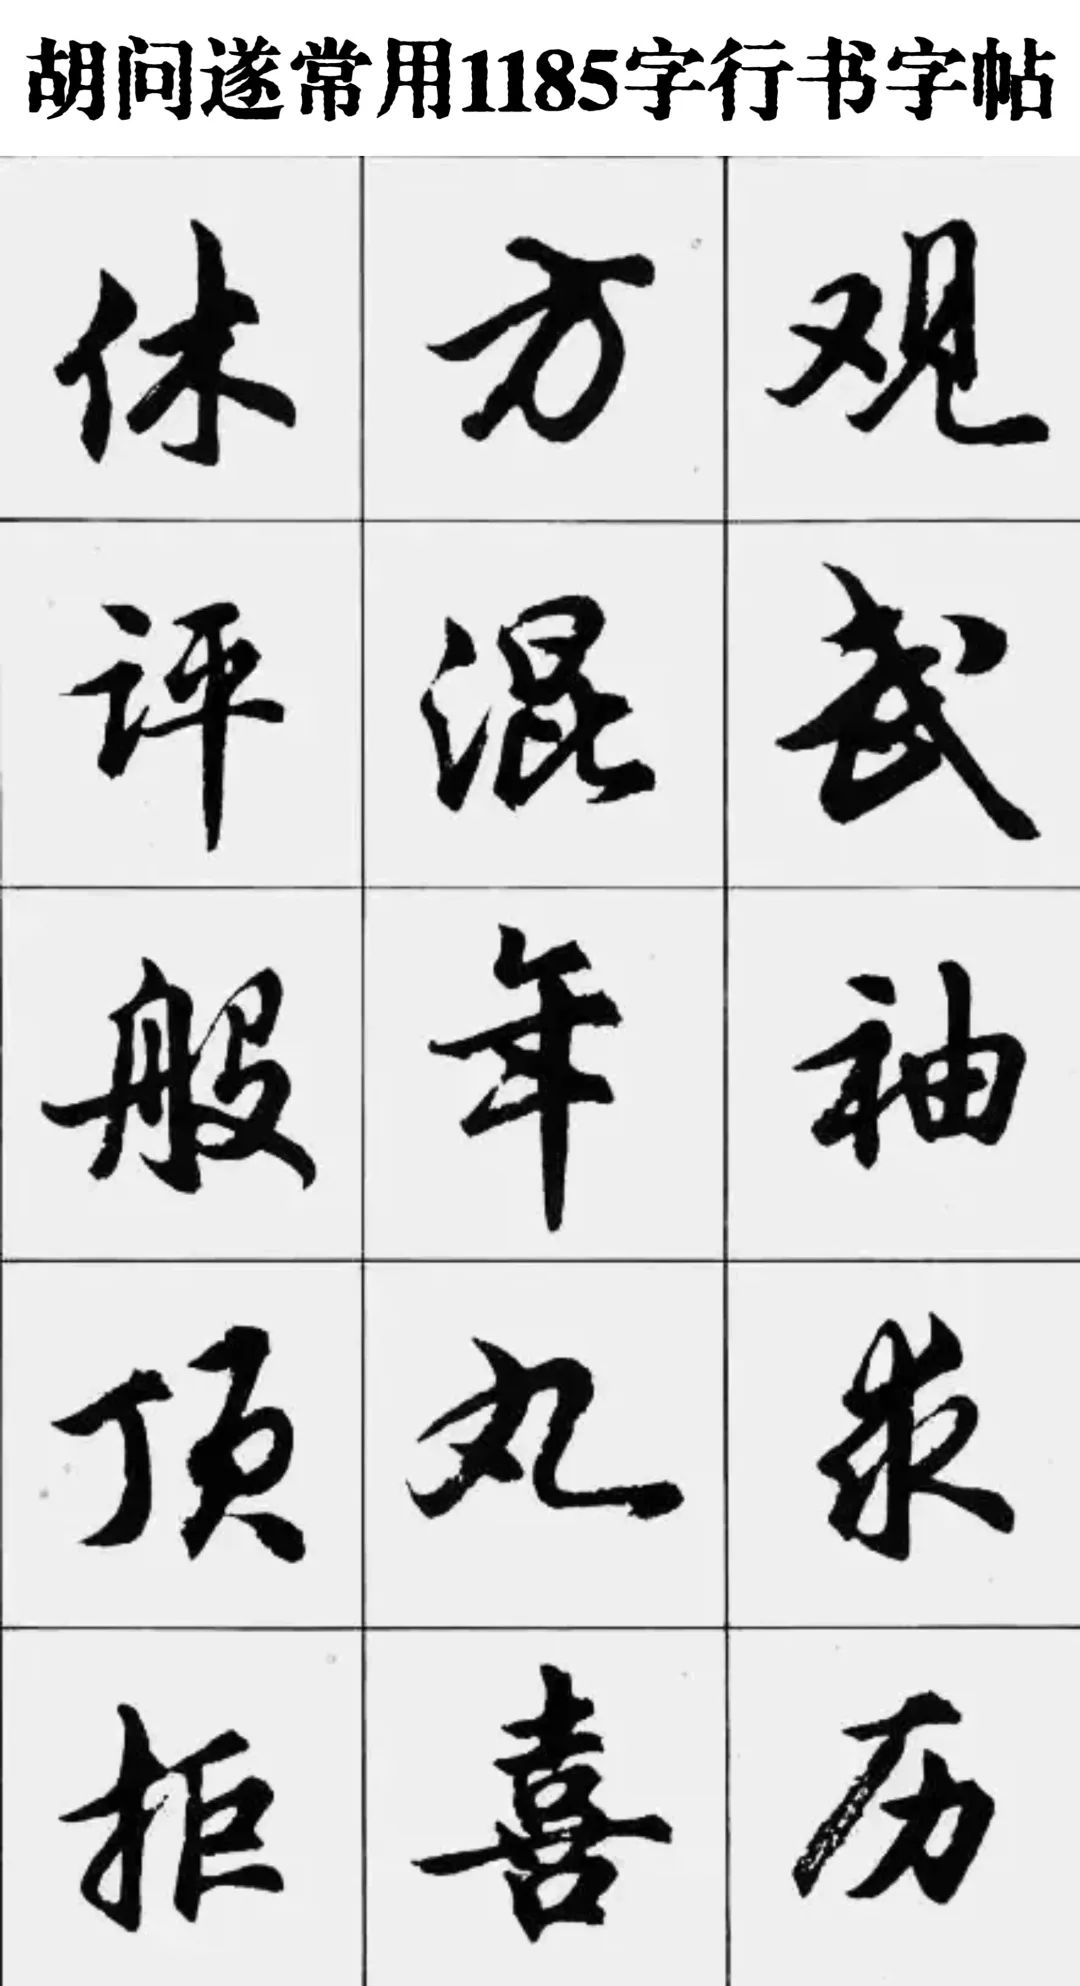 胡问遂常用1185字行书字帖
休方观
评混武
般年袖
顶丸求
拒喜历